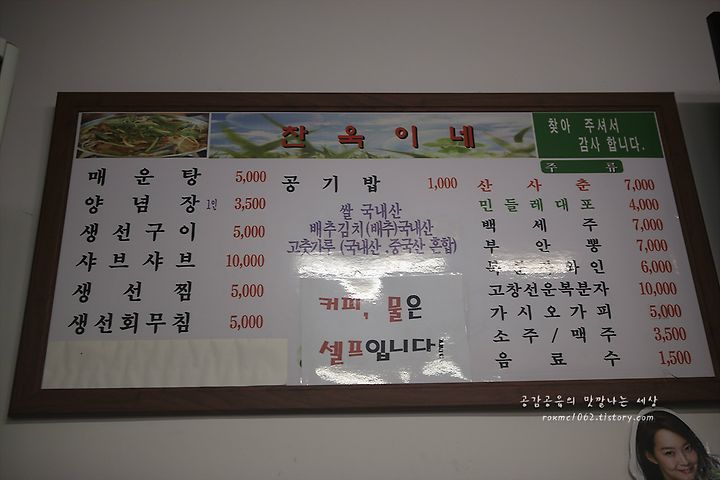 찬욱이네
찾아 주셔서
감사 합니다.
매운탕 5,000
양념장 1인 3,500
생선구이 5,000
샤브샤브 10,000
생선찜 5,000
생선회무침 5,000
공기밥 1,000
쌀 국내산
배추김치(배추)국내산
고춧가루 (국내산 .중국산 혼합)
커피, 물은
셀프입니다
주류
산사춘 7,000
민들레대포 4,000
백세주 7,000
부안뽕 7,000
와인 6,000
고창선운복분자 10,000
가시오가피 5,000
소주/맥주 3,500
음료수 1,500
공감공유의 맛깔나는 세상
rokmc1062.tistory.com